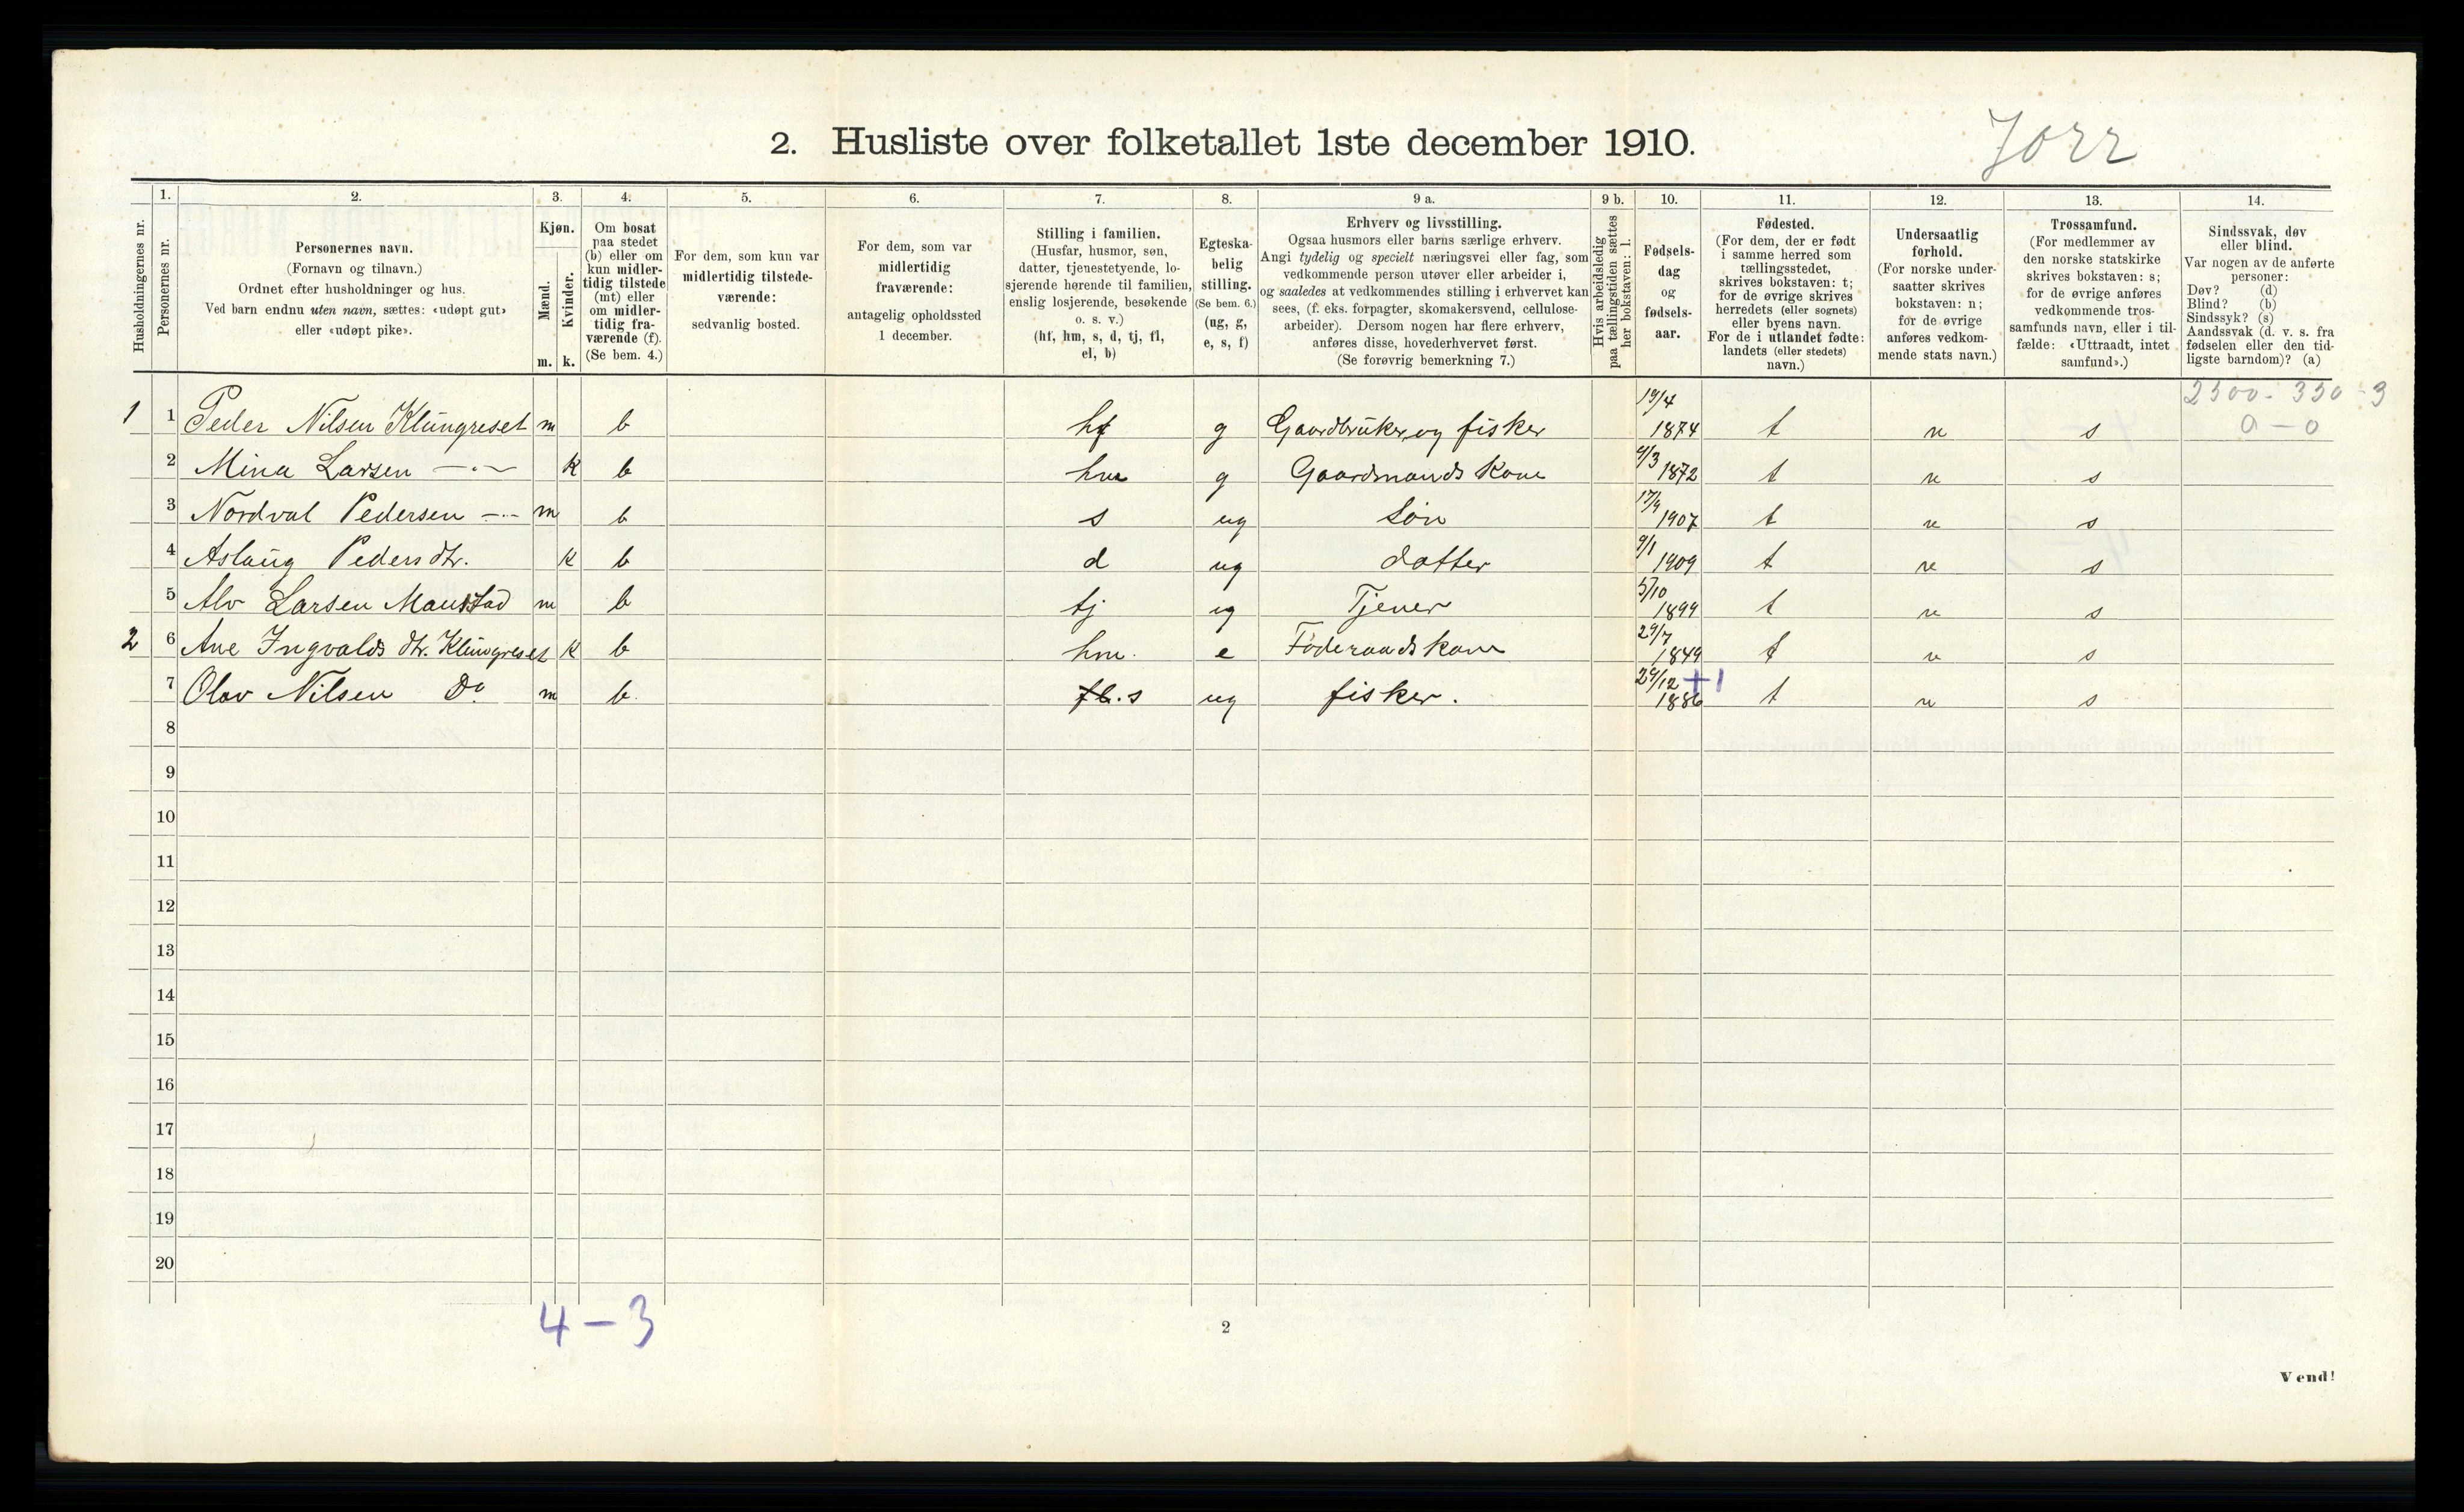 2. Husliste over folketallet 1ste december 1910.
Jorr
Husholdningernes nr.
1.
Personernes nr.
2.
Personernes navn.
(Fornavn og tilnavn.)
Ordnet efter husholdninger og hus.
Ved barn endnu uten navn, sættes: «udøpt gut»
eller «udøpt pike».
3.
Kjøn.
Mænd.
Kvinder.
m. k.
4.
Om bosat
paa stedet
(b) eller om
kun midler-
tidig tilstede
(mt) eller
om midler-
tidig fra-
værende (f).
(Se bem. 4.)
5.
For dem, som kun var
midlertidig tilstede-
værende:
sedvanlig bosted.
6.
For dem, som var
midlertidig
fraværende:
antagelig opholdssted
1 december.
7.
Stilling i familien.
(Husfar, husmor, søn,
datter, tjenestetyende, lo-
sjerende hørende til familien,
enslig losjerende, besøkende
o. s. v.)
(hf, hm, s, d, tj, fl,
el, b)
8.
Egteska-
belig
stilling.
(Se bem. 6.)
(ug, g,
e, s, f)
9 a.
Erhverv og livsstilling.
Ogsaa husmors eller barns særlige erhverv.
Angi tydelig og specielt næringsvei eller fag, som
vedkommende person utøver eller arbeider i,
og saaledes at vedkommendes stilling i erhvervet kan
sees, (f. eks. forpagter, skomakersvend, cellulose-
arbeider). Dersom nogen har flere erhverv,
anføres disse, hovederhvervet først.
(Se forøvrig bemerkning 7.)
9 b.
Hvis arbeidsledig
paa tællingstiden sættes
her bokstaven: l.
10.
Fødsels-
dag
og
fødsels-
aar.
11.
Fødested.
(For dem, der er født
i samme herred som
tællingsstedet,
skrives bokstaven: t;
for de øvrige skrives
herredets (eller sognets)
eller byens navn.
For de i utlandet fødte:
landets (eller stedets)
navn.)
12.
Undersaatlig
forhold.
(For norske under-
saatter skrives
bokstaven: n;
for de øvrige
anføres vedkom-
mende stats navn.)
13.
Trossamfund.
(For medlemmer av
den norske statskirke
skrives bokstaven: s;
for de øvrige anføres
vedkommende tros-
samfunds navn, eller i til-
fælde: «Uttraadt, intet
samfund».)
14.
Sindssvak, døv
eller blind.
Var nogen av de anførte
personer:
Døv? (d)
Blind? (b)
Sindssyk? (s)
Aandssvak (d. v. s. fra
fødselen eller den tid-
ligste barndom)? (a)
2500 - 350 - 3
0 - 0
1 1 Peder Nilsen Klungreset m b hf g Gaardbruker og fisker 19/4 1874 t n s
2 Mina Larsen —"— k b hm g Gaardmands kone 4/3 1872 t n s
3 Nordval Pedersen —"— m b s ug Søn 17/9 1907 t n s
4 Aslaug Pedersdtr. k b d ug datter 9/1 1909 t n s
5 Alv Larsen Maustad m b tj ug Tjener 5/10 1899 t n s
2 6 Ane Ingvalds dtr. Klungreset k b hm. e Føderaadskone 29/7 1849 t n s
7 Olav Nilsen Do m b. fl. s ug fisker. 29/12 +1 1886 t n s
8
9
10
11
12
13
14
15
16
17
18
19
20
4 - 3
2
Vend!